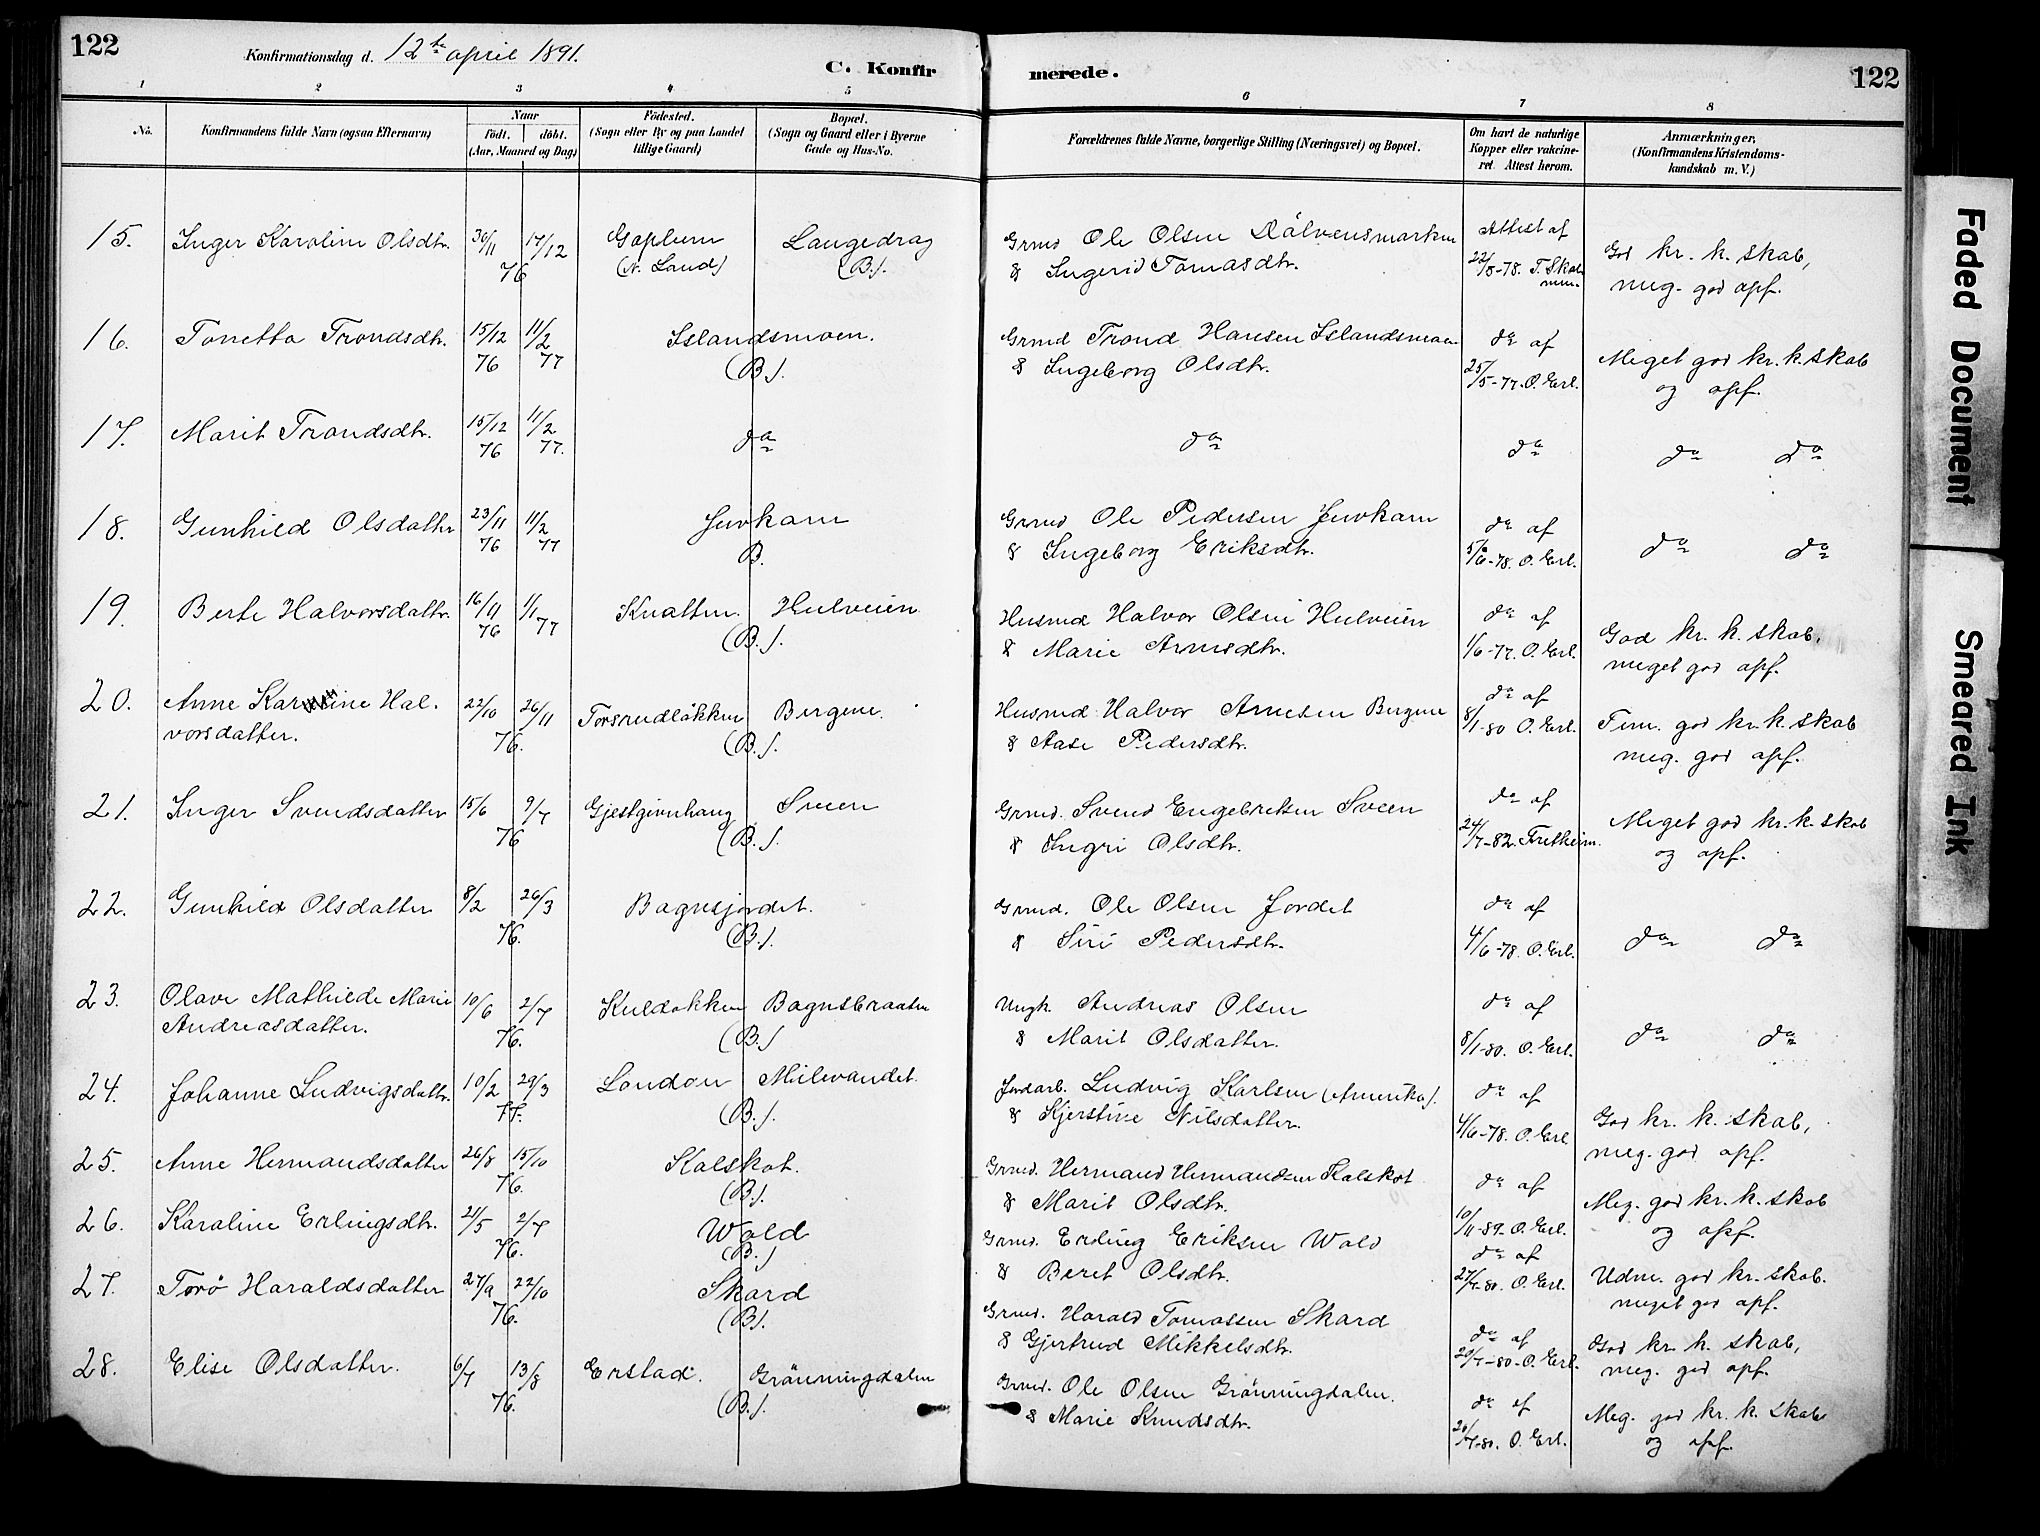 122
Konfirmationsdag d. 12te april 1891.
C. Konfir
merede.
122
1 2 3 4 5 6 7 8
No.
Konfirmandens fulde Navn (ogsaa Efternavn)
Naar
födt. döbt.
(Aar, Maaned og Dag)
Födested.
(Sogn eller By og paa Landet
tillige Gaard)
Bopæl.
(Sogn og Gaard eller i Byerne
Gade og Hus-No.
Forældrenes fulde Navne, borgerlige Stilling (Næringsvei) og Bopæl.
Om havt de naturlige
Kopper eller vakcine-
ret. Attest herom.
Anmærkninger,
(Konfirmandens Kristendoms-
kundskab m. V.)
15. Inger Karoline Olsdtr. 30/11 17/12 Langedrag Grmd Ole Olsen Attest af
76 (N. Land) (B.). & Ingerid Tomasdtr. 22/8-78. God kr. k. skab,
meg. god opf.
16. Tonetta Trondsdtr. 15/12 11/2 Islandsmoen. Grmd Trond Hansen Islandsmoen do af
76 77 (B). & Ingeborg Olsdtr. 25/5-77. O. Erl. Meget god kr. k. skab
og opf.
17. Marit Trondsdtr. 15/12 11/2 do do do do do
76 77.
18. Gunhild Olsdatter 23/11 11/2 Juvkam Grmd Ole Pedersen Juvkam do af
76 77 B. & Ingeborg Eriksdtr. 5/6-78. O. Erl. do do
19. Berte Halvorsdattr. 16/11 1/1 Knatten Hulveien Husmd Halvor Olsen Hulveien do af
76 77 (B.). & Marie Arnesdtr. 1/6-77. O. Erl. God kr. k. skab,
meget god opf.
20. Anne Karoline Hal- 22/10 26/11 Torsrudløkken Bergene. Husmd Halvor Arnesen Bergene do af
vorsdatter. 76. (B.). & Aase Pedersdtr. 8/1-80 O. Erl. Tem. god kr. k. skab
meg. god opf.
21. Inger Svendsdatter 15/6 9/7 Sveen Grmd. Svend Engebretsen Sveen do af
76 (B.). & Ingri Olsdtr. 24/7-82. Fretheim. Meget god kr. k. skab
og opf.
22. Gunhild Olsdatter 8/2 26/3 Bagnsjordet. Grmd. Ole Olsen Jordet do af
76. (B.). & Siri Pedersdtr. 4/6-78. O. Erl. do do
23. Olave Mathilde Marie 10/6 2/7 Bagnsbraaten Ungk. Andreas Olsen do af
Andreasdatter. 76. (B.) & Marit Olsdatter. 8/1-80. O. Erl. do do
24. Johanne Ludvigsdattr. 10/2 29/3 London Jordarb. Ludvig Karlsen (Amerika). do af
77. (B.). & Kjerstine Nilsdatter. 4/6-78. O. Erl God kr. k. skab,
meg. god opf.
25. Anne Hermandsdatter 26/8 15/10 Kalskot. Grmd. Hermand Hermandsen Kalskot do af
76. (B.). & Marit Olsdtr. 10/11-89. O. Erl. Meg. god kr. k. skab
og opf.
26. Karoline Erlingsdtr. 21/5 2/7 Wold Grmd. Erling Eriksen Wold do af
76. (B.) & Beret Olsdtr. 27/7-80. O. Erl. Udm. god kr. skab.
meget god opf.
27. Torø Haraldsdatter 27/9 22/10 Skard Grmd. Harald Tomassen Skard do af
76. (B). & Gjertrud Mikkelsdtr. 20/7-80. O. Erl. God kr. k. skab,
meg. god opf.
28. Elise Olsdatter. 6/7 13/8 Erstad. Grönningdalen Grmd. Ole Olsen Grönningdalen. do af
76. (B.). & Marie Knudsdtr. 20/7-80. O. Erl. Meg. god kr. k. skab
og opf.
Faded Document
Smeared Ink